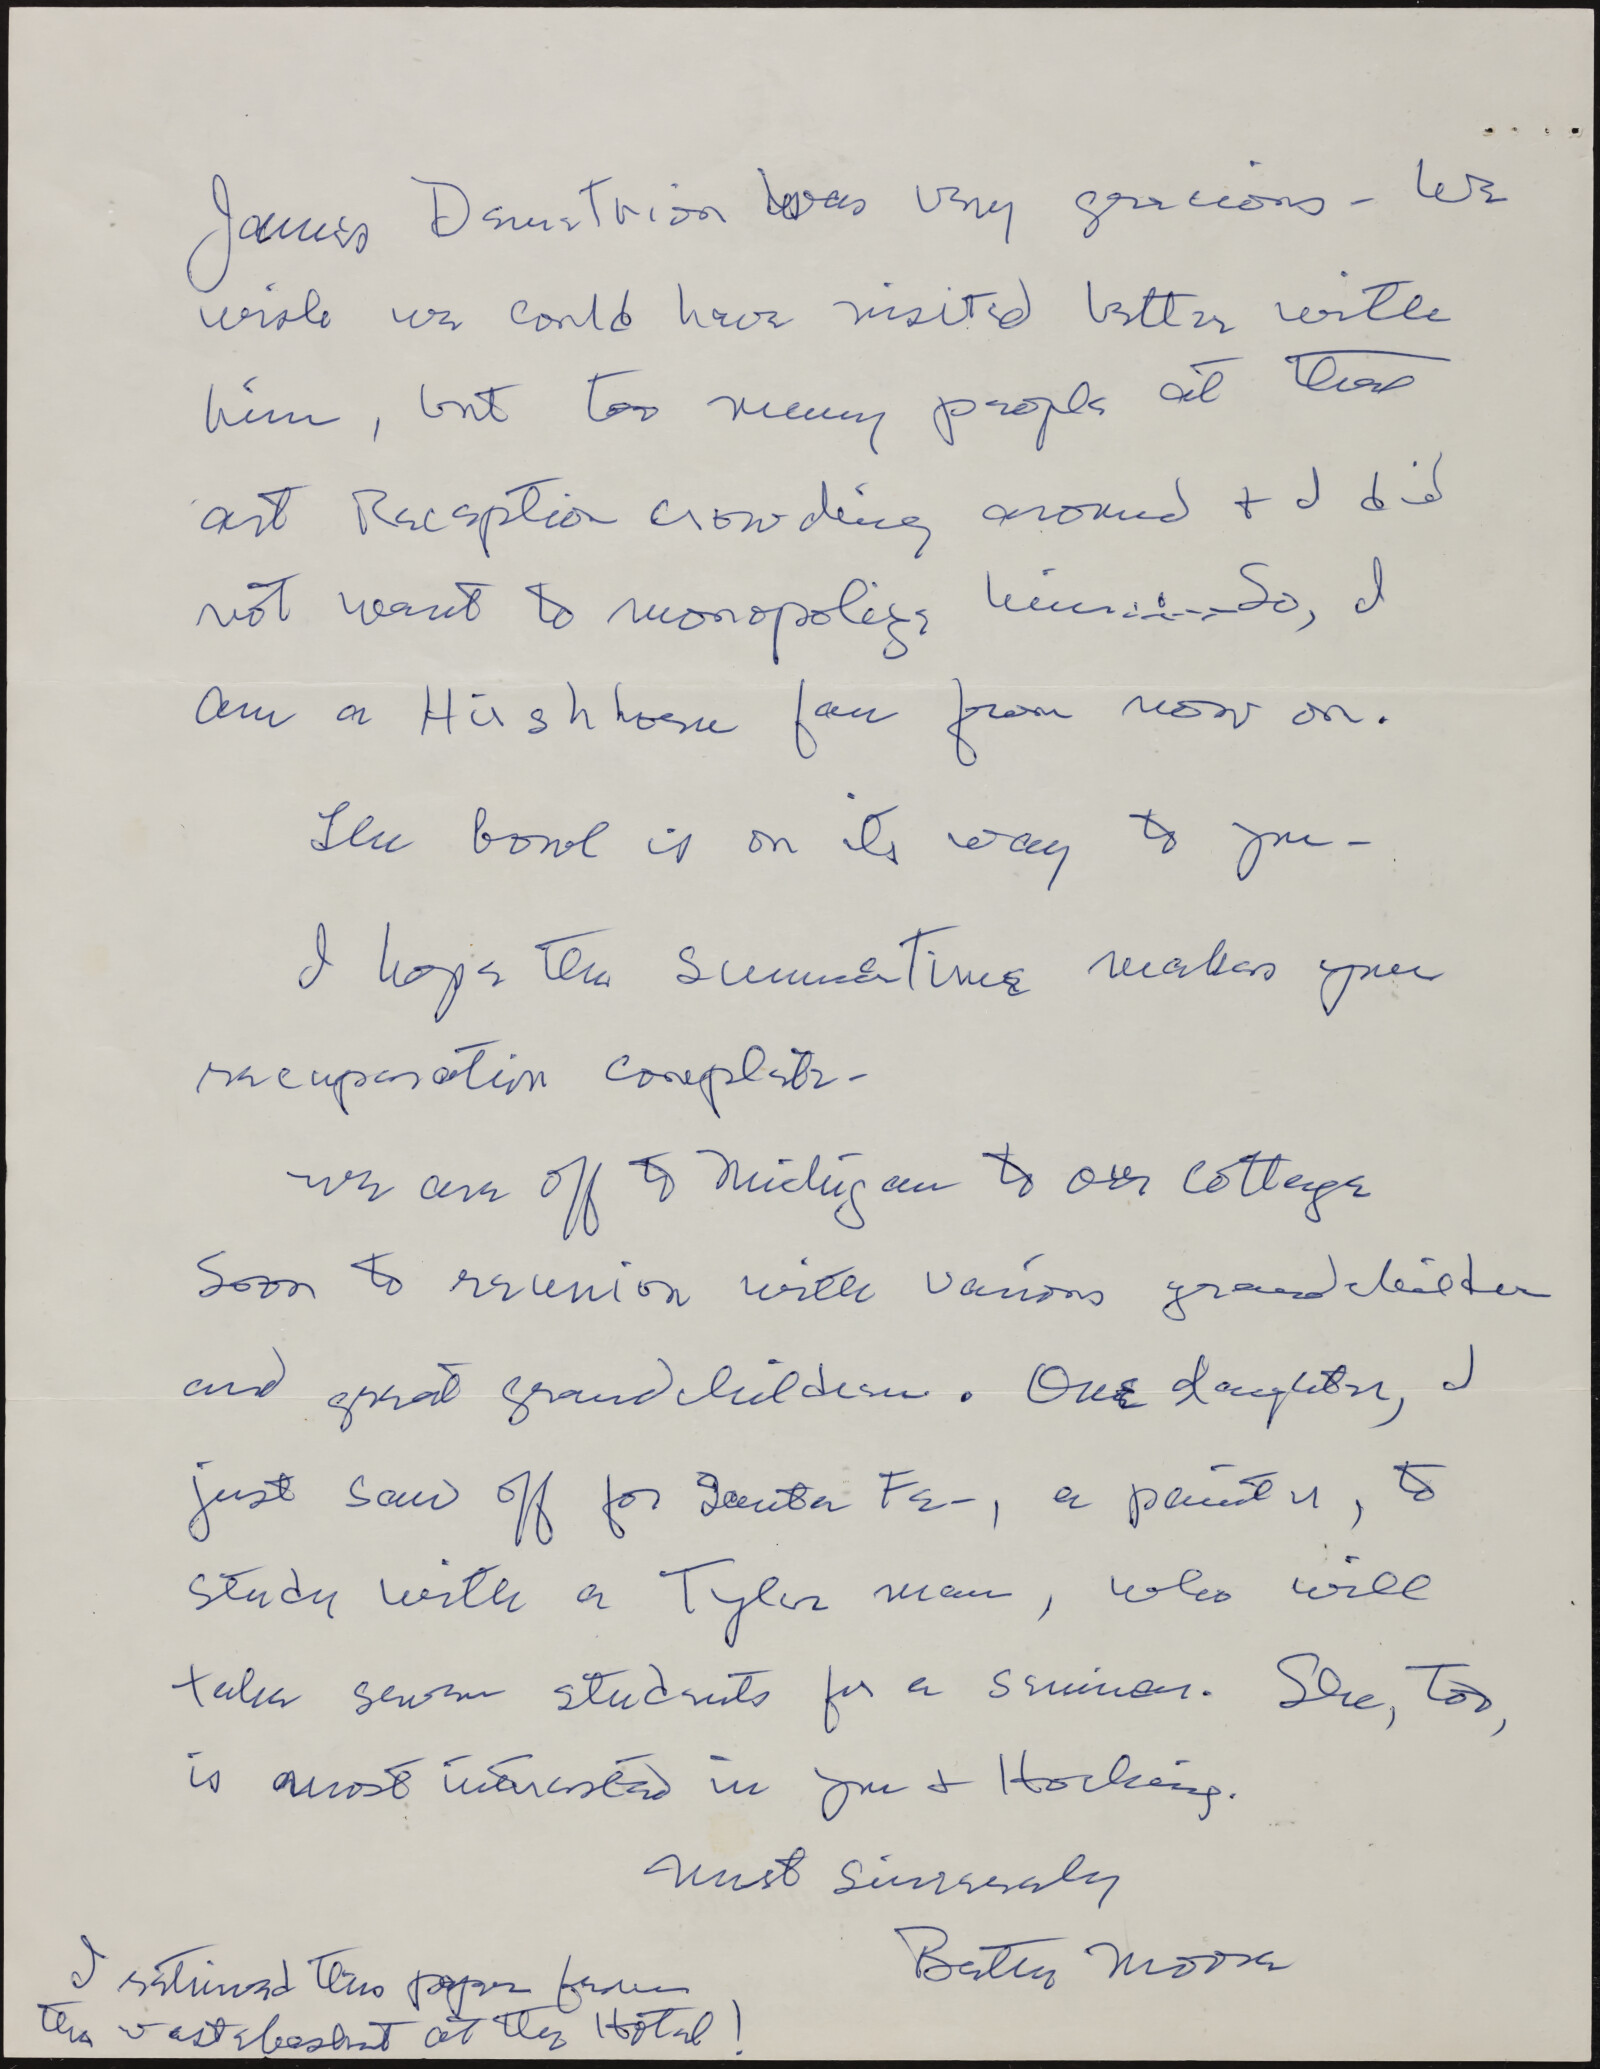 James Demetrion was very gracious - We
wish we could have visited better with
him, but too many people at that
art Reception crowding around + I did
not want to monopolize him......So, I
am a Hirshhorn fan from now on.
The bowl is on its way to you -
I hope the summertime makes your
recuperation complete -
We are off to Michigan to our cottage
soon to reunion with various grandchildren
and great grandchildren. One daughter, I
just saw off for Santa Fe -, a painter, to
study with a Tyler man, who will
take seven students for a seminar. She, too,
is most interested in you + Hocking.
Most sincerely
Betty Moore
I retrieved this paper from
the wastebasket at the Hotel!